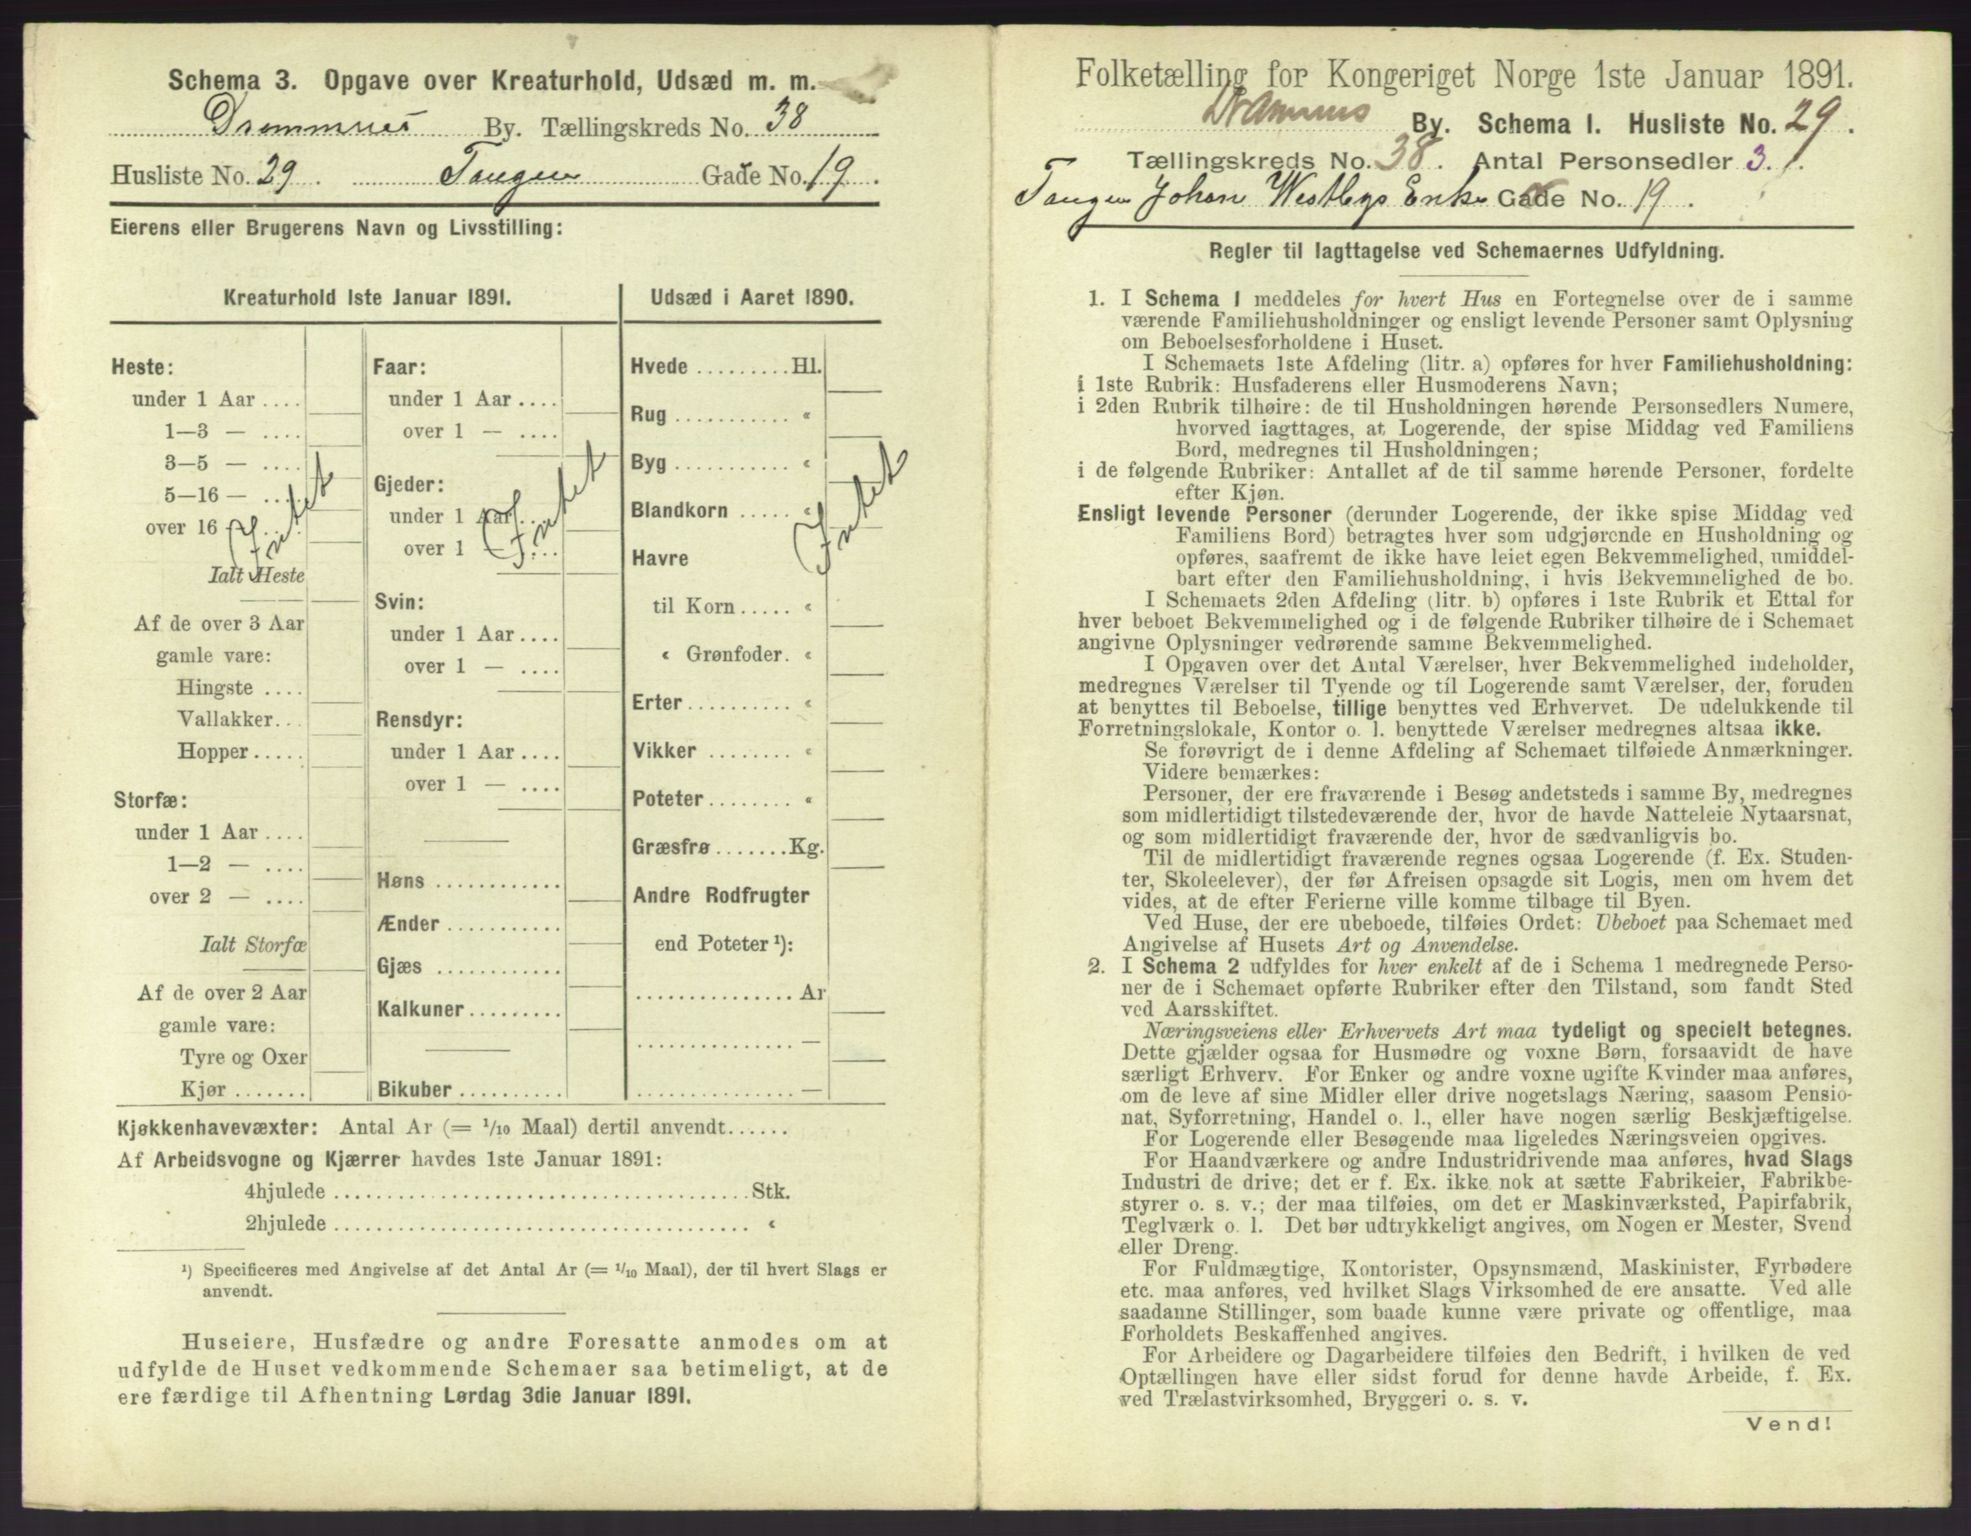 Schema 3. Opgave over Kreaturhold, Udsæd m. m.
Drammens By. Tællingskreds No. 38
Husliste No. 29. Tangen Gade No. 19.
Eierens eller Brugerens Navn og Livsstilling:
Kreaturhold 1ste Januar 1891.
Heste:
under 1 Aar ....
1—3 — ....
3—5 — ....
5—16 — ....
over 16 — ....
Intet
Ialt Heste
Af de over 3 Aar
gamle vare:
Hingste ....
Vallakker...
Hopper.....
Storfæ:
under 1 Aar ....
1—2 — ....
over 2 — ....
Ialt Storfæ
Af de over 2 Aar
gamle vare:
Tyre og Oxer
Kjør .......
Faar:
under 1 Aar ....
over 1 — ....
Gjeder:
under 1 Aar ....
over 1 — ....
Intet
Svin:
under 1 Aar....
over 1 — ....
Rensdyr:
under 1 Aar ....
over 1 — ....
Høns ............
Ænder ...........
Gjæs ............
Kalkuner.........
Bikuber ..........
Udsæd i Aaret 1890.
Hvede .........Hl.
Rug ........... «
Byg ........... «
Blandkorn ..... «
Intet
Havre
til Korn ..... «
« Grønfoder. «
Erter.......... «
Vikker ........ «
Poteter........ «
Græsfrø .......Kg.
Andre Rodfrugter
end Poteter ¹):
............... Ar
............... —
............... —
Kjøkkenhavevæxter: Antal Ar (= 1/10 Maal) dertil anvendt......
Af Arbeidsvogne og Kjærrer havdes 1ste Januar 1891:
4hjulede ........................................Stk.
2hjulede ........................................ «
¹) Specificeres med Angivelse af det Antal Ar (= 1/10 Maal), der til hvert Slags er
anvendt.
Huseiere, Husfædre og andre Foresatte anmodes om at
udfylde de Huset vedkommende Schemaer saa betimeligt, at de
ere færdige til Afhentning Lørdag 3die Januar 1891.
Folketælling for Kongeriget Norge 1ste Januar 1891.
Drammens By. Schema 1. Husliste No. 29.
Tællingskreds No. 38. Antal Personsedler 3.
Tangen Johan Westbys Enke Gade No. 19.
Regler til Iagttagelse ved Schemaernes Udfyldning.
1. I Schema 1 meddeles for hvert Hus en Fortegnelse over de i samme
værende Familiehusholdninger og ensligt levende Personer samt Oplysning
om Beboelsesforholdene i Huset.
I Schemaets 1ste Afdeling (litr. a) opføres for hver Familiehusholdning:
i 1ste Rubrik: Husfaderens eller Husmoderens Navn;
i 2den Rubrik tilhøire: de til Husholdningen hørende Personsedlers Numere,
hvorved iagttages, at Logerende, der spise Middag ved Familiens
Bord, medregnes til Husholdningen;
i de følgende Rubriker: Antallet af de til samme hørende Personer, fordelte
efter Kjøn.
Ensligt levende Personer (derunder Logerende, der ikke spise Middag ved
Familiens Bord) betragtes hver som udgjørende en Husholdning og
opføres, saafremt de ikke have leiet egen Bekvemmelighed, umiddel-
bart efter den Familiehusholdning, i hvis Bekvemmelighed de bo.
I Schemaets 2den Afdeling (litr. b) opføres i 1ste Rubrik et Ettal for
hver beboet Bekvemmelighed og i de følgende Rubriker tilhøire de i Schemaet
angivne Oplysninger vedrørende samme Bekvemmelighed.
I Opgaven over det Antal Værelser, hver Bekvemmelighed indeholder,
medregnes Værelser til Tyende og til Logerende samt Værelser, der, foruden
at benyttes til Beboelse, tillige benyttes ved Erhvervet. De udelukkende til
Forretningslokale, Kontor o. l. benyttede Værelser medregnes altsaa ikke.
Se forøvrigt de i denne Afdeling af Schemaet tilføiede Anmærkninger.
Videre bemærkes:
Personer, der ere fraværende i Besøg andetsteds i samme By, medregnes
som midlertidigt tilstedeværende der, hvor de havde Natteleie Nytaarsnat,
og som midlertidigt fraværende der, hvor de sædvanligvis bo.
Til de midlertidigt fraværende regnes ogsaa Logerende (f. Ex. Studen-
ter, Skoleelever), der før Afreisen opsagde sit Logis, men om hvem det
vides, at de efter Ferierne ville komme tilbage til Byen.
Ved Huse, der ere ubeboede, tilføies Ordet: Ubeboet paa Schemaet med
Angivelse af Husets Art og Anvendelse.
2. I Schema 2 udfyldes for hver enkelt af de i Schema 1 medregnede Perso-
ner de i Schemaet opførte Rubriker efter den Tilstand, som fandt Sted
ved Aarsskiftet.
Næringsveiens eller Erhvervets Art maa tydeligt og specielt betegnes.
Dette gjælder ogsaa for Husmødre og voxne Børn, forsaavidt de have
særligt Erhverv. For Enker og andre voxne ugifte Kvinder maa anføres,
om de leve af sine Midler eller drive nogetslags Næring, saasom Pensio-
nat, Syforretning, Handel o. l., eller have nogen særlig Beskjæftigelse.
For Logerende eller Besøgende maa ligeledes Næringsveien opgives.
For Haandværkere og andre Industridrivende maa anføres, hvad Slags
Industri de drive; det er f. Ex. ikke nok at sætte Fabrikeier, Fabrikbe-
styrer o. s. v.; der maa tilføies, om det er Maskinværksted, Papirfabrik,
Teglværk o. l. Det bør udtrykkeligt angives, om Nogen er Mester, Svend
eller Dreng.
For Fuldmægtige, Kontorister, Opsynsmænd, Maskinister, Fyrbødere
etc. maa anføres, ved hvilket Slags Virksomhed de ere ansatte. Ved alle
saadanne Stillinger, som baade kunne være private og offentlige, maa
Forholdets Beskaffenhed angives.
For Arbeidere og Dagarbeidere tilføies den Bedrift, i hvilken de ved
Optællingen have eller sidst forud for denne havde Arbeide, f. Ex.
ved Trælastvirksomhed, Bryggeri o. s. v.
Vend!